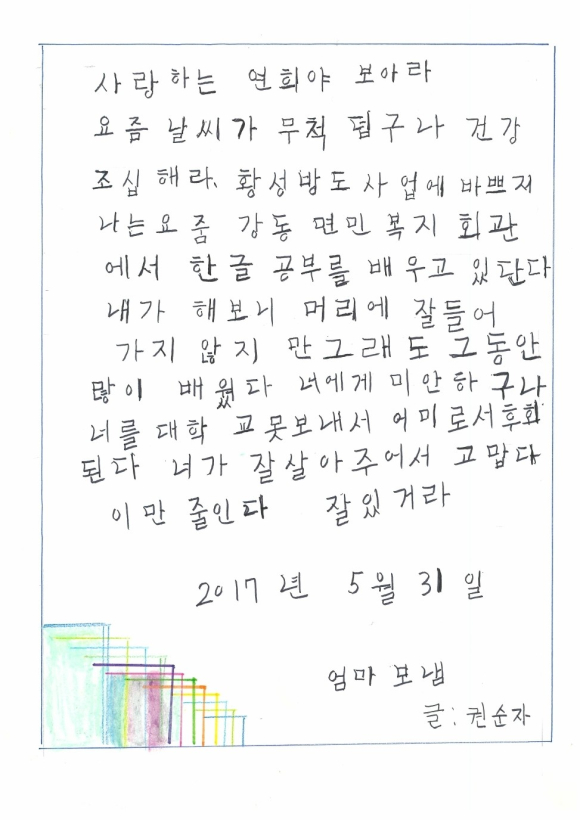 사랑하는 연희야 보아라
요즘 날씨가 무척 덥구나 건강
조십 해라. 황성방도 사업에 바쁘지
나는 요줌 강동 면민 복지 회관
에서 한글 공부를 배우고 있단다
내가 해보니 머리에 잘들어
가지 않지 만 그래도 그동안
많이 배웠다 너에게 미안하 구나
너를 대학 교못보내서 어미로서후회
된다 너가 잘살아주어서 고맙다
이만 줄인다 잘있거라
2017 년 5월 31 일
엄마 보냄
글: 권순자